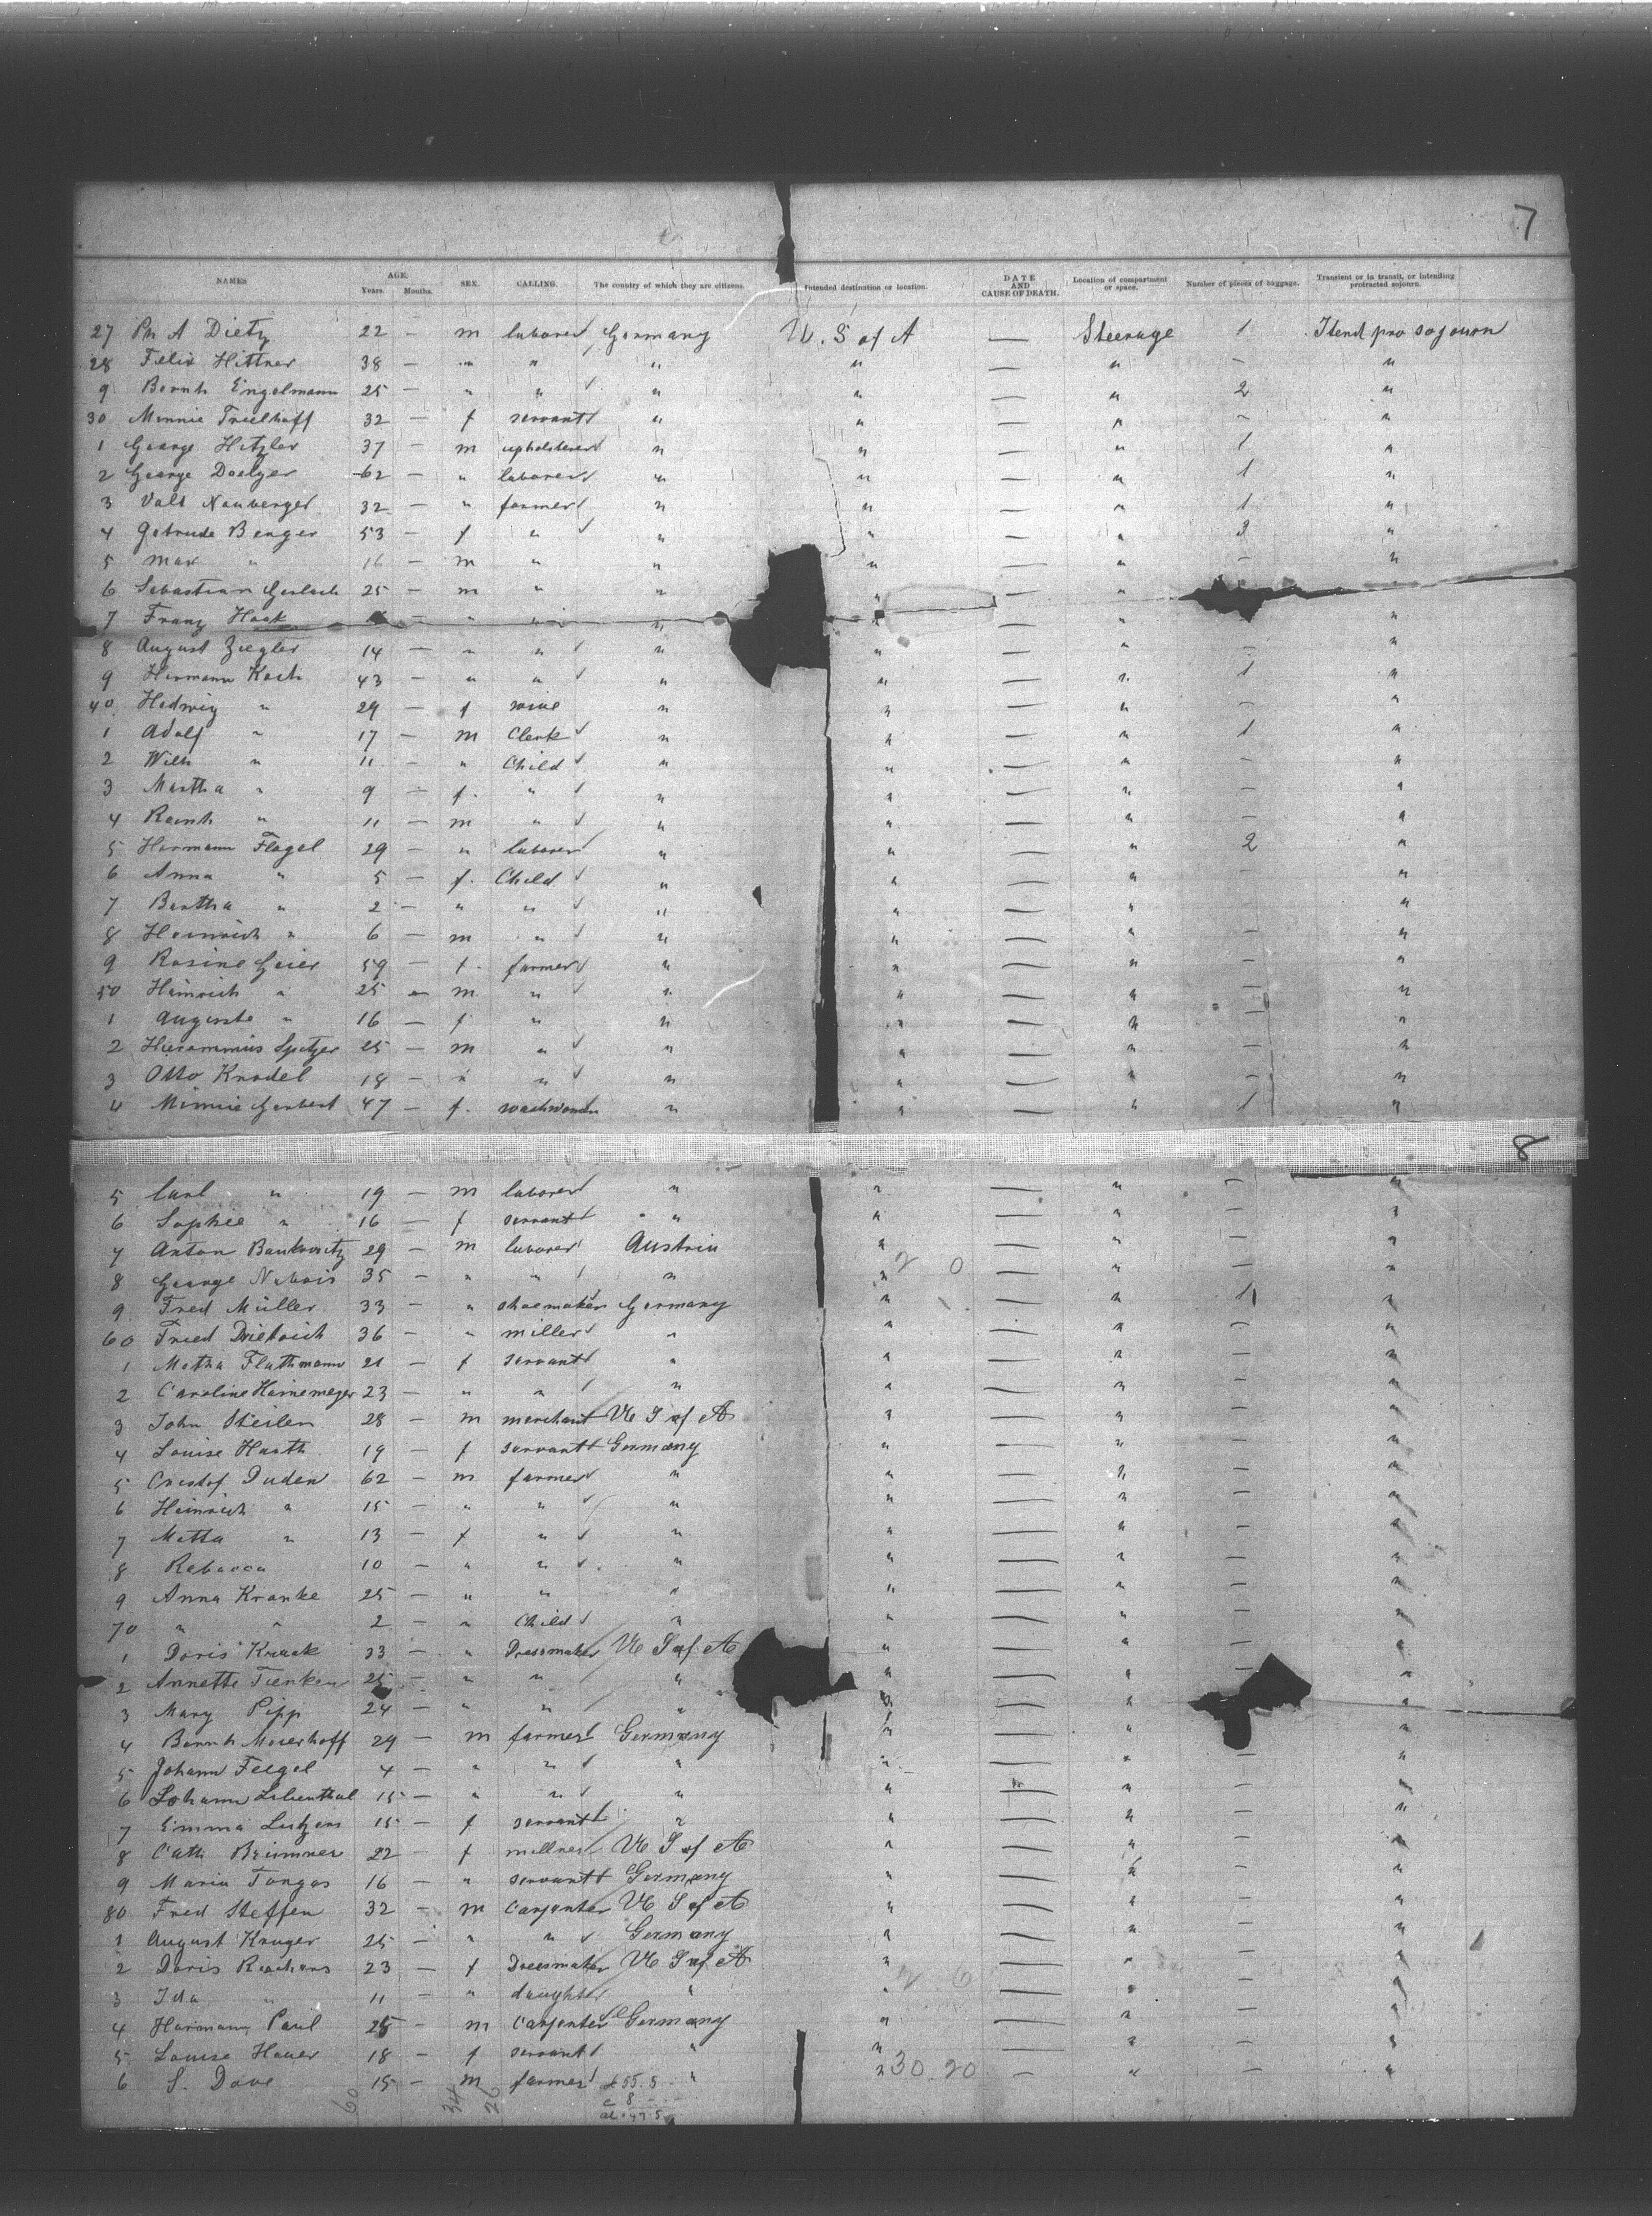 7
NAMES AGE. Years. Months. SEX. CALLING. The country of which they are citizens. Intended destination or location. DATE AND CAUSE OF DEATH. Location of compartment or space. Number of pieces of baggage. Transient or in transit, or intending protracted sojourn.
27 Ph A Dietz 22 — m laborer Germany U. S of A — Steerage 1 Itend pro sojourn
28 Felix Hittner 38 — " " " " — " — "
9 Bernh Engelmann 25 — " " " " — " 2 "
30 Minnie Trielhoff 32 — f servant " " — " — "
1 George Hitzler 37 — m upholsterer " " — " 1 "
2 George Doelger 62 — " laborer " " — " 1 "
3 Valt Nauberger 32 — " farmer " " — " 1 "
4 Getrude Benger 53 — f " " " — " 3 "
5 Max " 16 — m " " " — " — "
6 Sebastian Gerlach 25 — m " " " — "
7 Franz Haak — " " " " — " "
8 August Ziegler 14 — " " " " — " — "
9 Hermann Koch 43 — " " " " — " 1 "
40 Hedwig " 29 — f wive " " — " — "
1 Adolf " 17 — m Clerk " " — " 1 "
2 Wilh " 11 — " Child " " — " — "
3 Martha " 9 — f. " " " — " — "
4 Reinh " 11 — m " " " — " — "
5 Hermann Flagel 29 — " laborer " " — " 2 "
6 Anna " 5 — f. Child " " — " — "
7 Bertha " 2 — " " " " — " — "
8 Heinrich " 6 — m " " " — " — "
9 Rosine Geier 59 — f. farmer " " — " — "
50 Heinrich " 25 — m " " " — " — "
1 Auguste " 16 — f " " " — " — "
2 Hieronimus Spitzer 25 — m " " " — " — "
3 Otto Knodel 18 — " " " " — " — "
4 Minnie Gerbert 47 — f. washwoman " " — " 1 "
8
5 Carl " 19 — m laborer " " — " — "
6 Sophie " 16 — f servant " " — " — "
7 Anton Bankowitz 29 — m laborer Austria " — " — "
8 George Nabois 35 — " " " " 2 0 — " — "
9 Fred Müller 33 — " shoemaker Germany " — " 1 "
60 Fried Dietrich 36 — " miller " " — " — "
1 Metha Fluthmann 21 — f servant " " — " — "
2 Caroline Heinemeyer 23 — " " " " — " — "
3 John Steilen 28 — m merchant U S of A " — " — "
4 Louise Haath 19 — f servant Germany " — " — "
5 Cristof Duden 62 — m farmer " " — " — "
6 Heinrich " 15 — " " " " — " — "
7 Metta " 13 — f " " " — " — "
8 Rebecca 10 — " " " " — " — "
9 Anna Kranke 25 — " " " " — " — "
70 " " 2 — " Child " " — " — "
1 Doris Kraak 33 — " Dressmaker U S of A " — " — "
2 Annette Tienken 25 — " " " " — " — "
3 Mary Pipp 24 — " " " " — " "
4 Bernh Meierhoff 29 — m farmer Germany " — " "
5 Johann Feigel 4 — " " " " — " — "
6 Johann Lilienthal 15 — " " " " — " — "
7 Emma Lutzens 15 — f servant " " — " — "
8 Cath Brümmer 22 — f millner U S of A " — " — "
9 Maria Tonges 16 — " servant Germany " — " — "
80 Fred Steffen 32 — m Carpenter U S of A " — " — "
1 August Kruger 25 — " " Germany " — " — "
2 Doris Reachers 23 — f Dressmaker U S of A " — " — "
3 Ida " 11 — " daughter " " — " — "
4 Hermann Paul 25 — m Carpenter Germany " — " — "
5 Louise Hauer 18 — f servant " " — " — "
6 S. Dove 15 — m farmer " " 30.20 — " — "
60 34 26